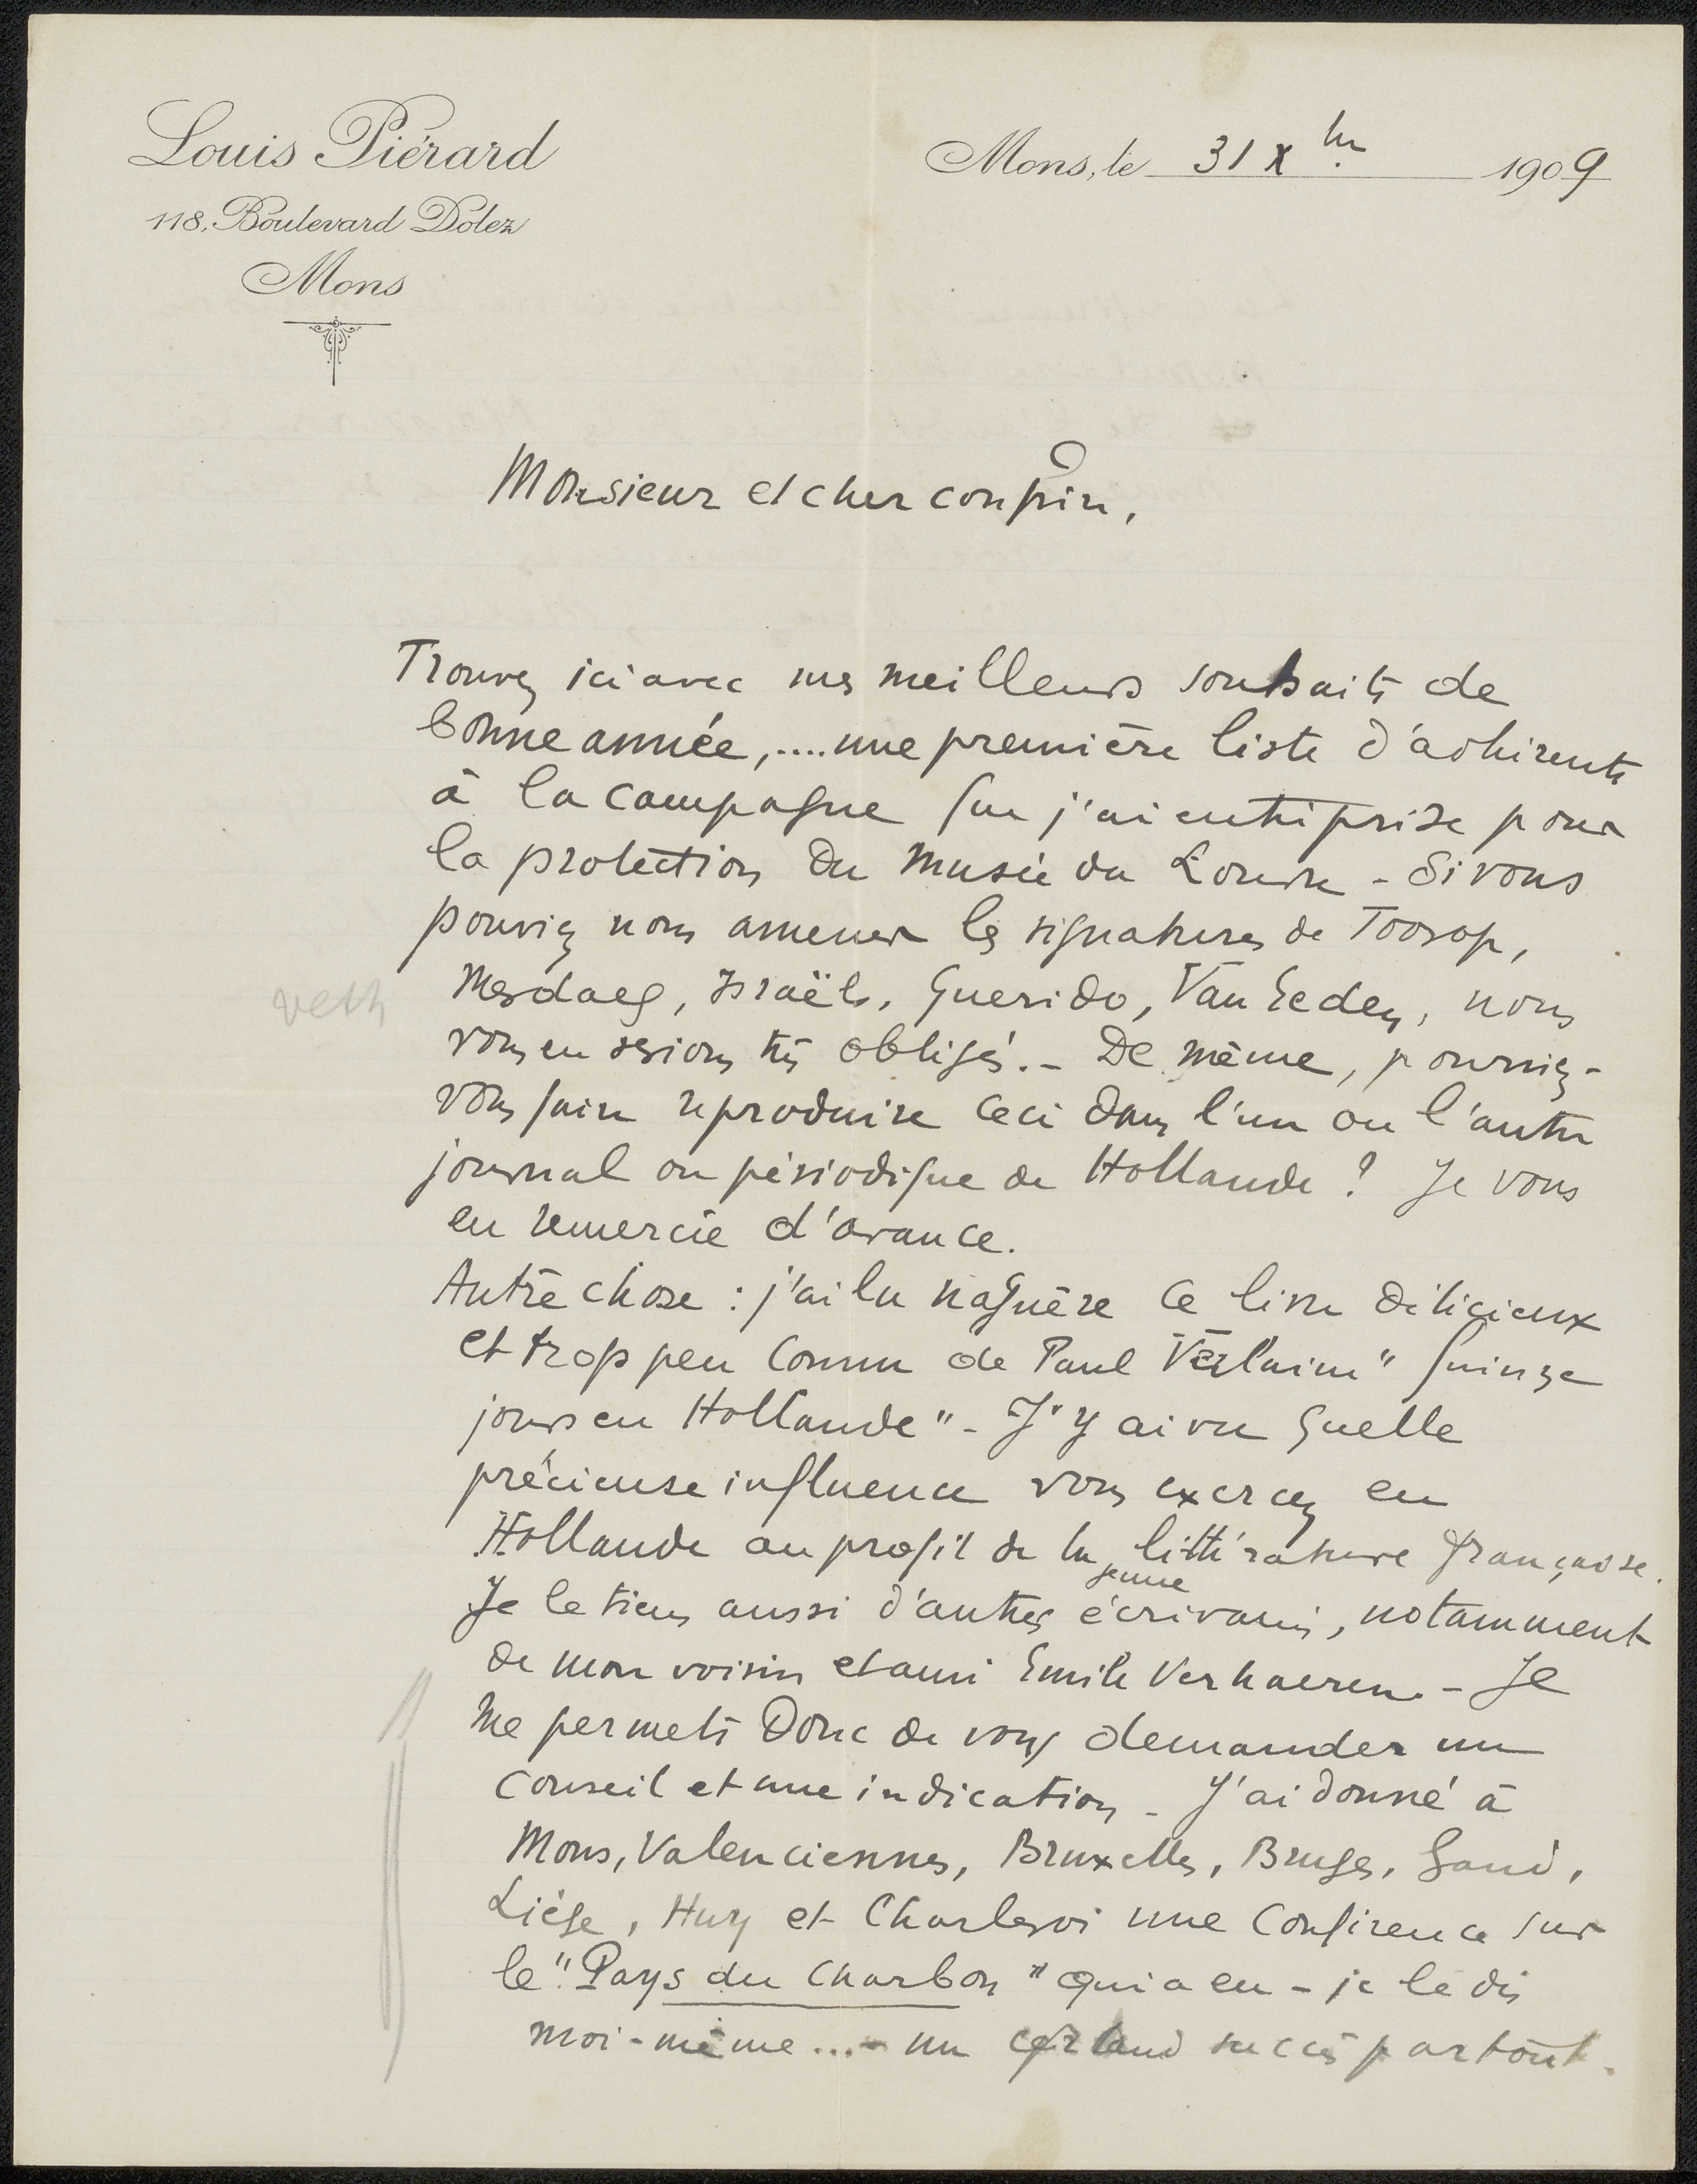 Louis Piérard
118, Boulevard Dolez
Mons
Mons, le 31 Xbre 1909
Monsieur et cher confrère,
Trouvez ici avec mes meilleurs souhaits de
bonne année, .... une première liste d'adhérents
à la campagne que j'ai entreprise pour
la protection du Musée du Louvre - Si vous
pouviez nous amener les signatures de Toorop,
veth
Mesdaeg, Israëls, Querido, Van Eeden, nous
vous en serions très obligés. - De même, pourriez-
vous faire reproduire ceci dans l'un ou l'autre
journal ou périodique de Hollande ? Je vous
en remercie d'avance.
Autre chose : j'ai lu naguère ce livre délicieux
et trop peu connu de Paul Verlaine "Quinze
jours en Hollande" - J'y ai vu quelle
précieuse influence vous exercez en
Hollande au profit de la jeune littérature française.
Je le tiens aussi d'autres écrivains, notamment
de mon voisin et ami Emile Verhaeren. - Je
me permets donc de vous demander un
conseil et une indication - J'ai donné à
Mons, Valenciennes, Bruxelles, Bruges, Gand,
Liége, Huy et Charleroi une conférence sur
le "Pays du Charbon" qui a eu - je le dis
moi-même ... - un certain succès partout.